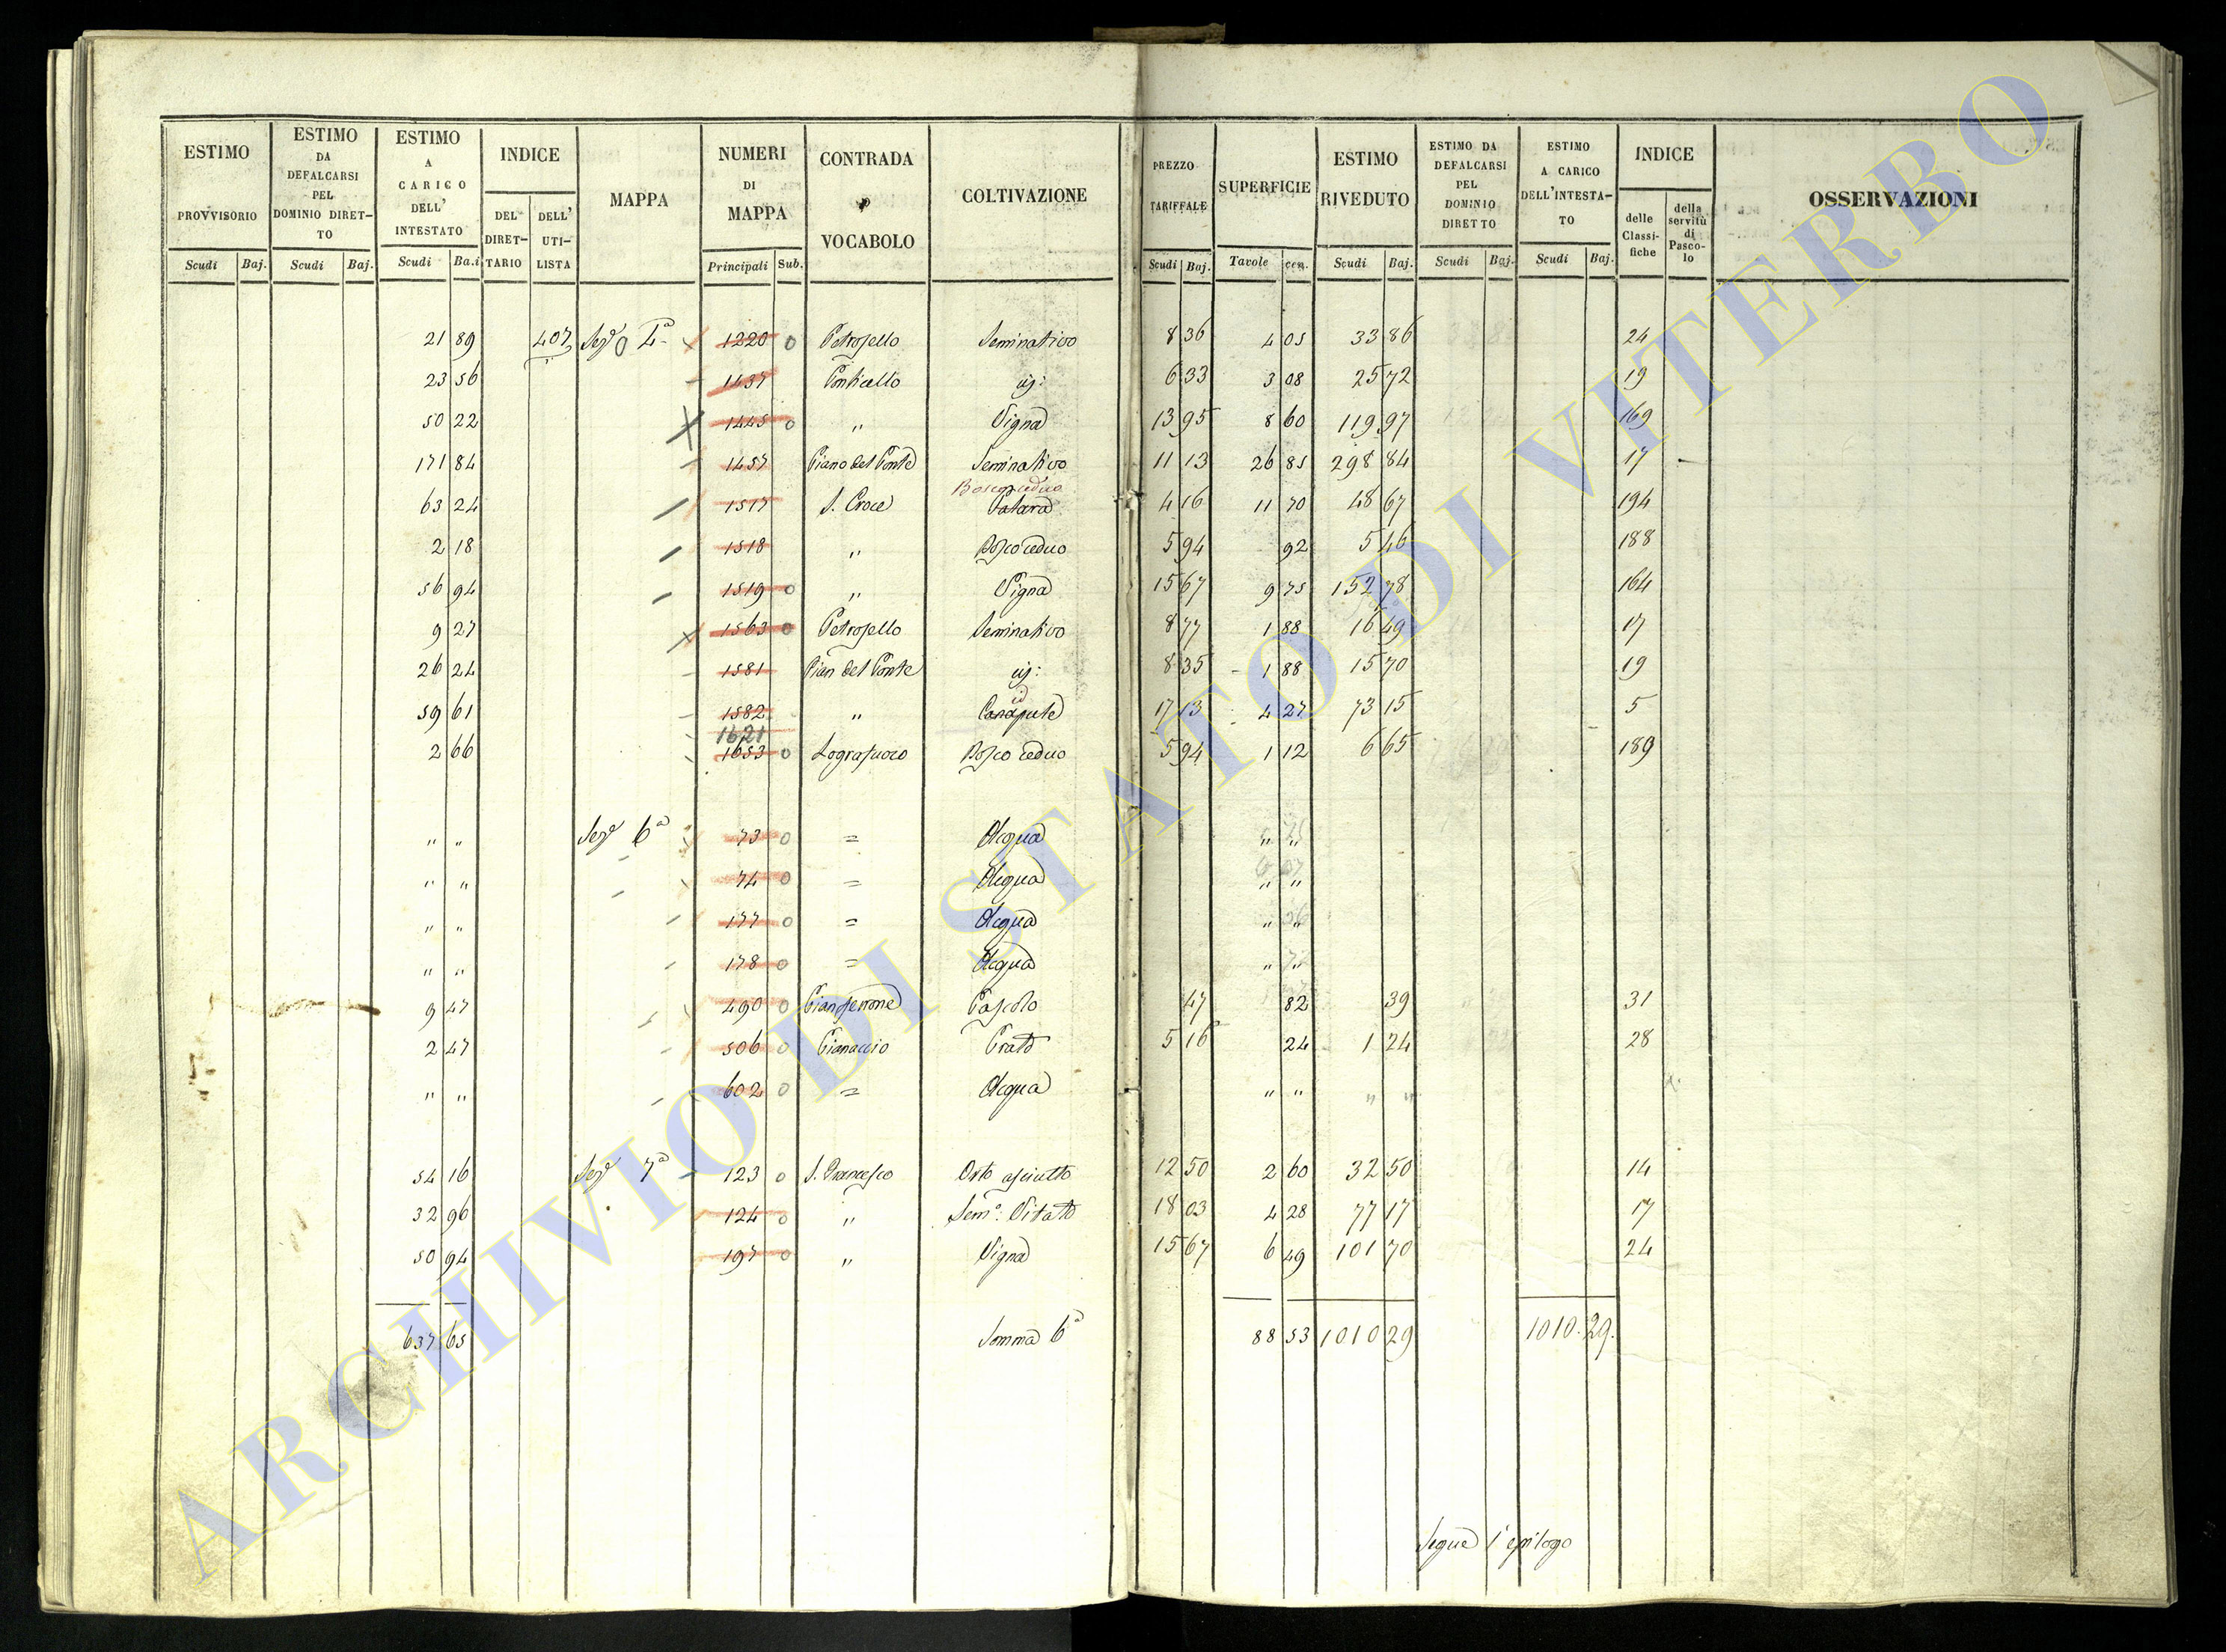 ESTIMO PROVVISORIO Scudi Baj.
ESTIMO DA DEFALCARSI PEL DOMINIO DIRET-TO Scudi Baj.
ESTIMO A CARICO DELL' INTESTATO Scudi Ba.i
INDICE DEL DIRET-TARIO DELL' UTI-LISTA
MAPPA
NUMERI DI MAPPA Principali Sub.
CONTRADA O VOCABOLO
COLTIVAZIONE
PREZZO TARIFFALE Scudi Baj.
SUPERFICIE Tavole cen.
ESTIMO RIVEDUTO Scudi Baj.
ESTIMO DA DEFALCARSI PEL DOMINIO DIRETTO Scudi Baj.
ESTIMO A CARICO DELL'INTESTA-TO Scudi Baj.
INDICE delle Classi-fiche della servitù di Pasco-lo
OSSERVAZIONI
21 89 407 Sez.e 4a 1220 0 Petrosello Seminativo 8 36 4 05 33 86 24
23 56 1437 Ponticello id: 6 33 3 08 25 72 19
50 22 1445 0 " Vigna 13 95 8 60 119 97 169
171 84 1457 Piano del Ponte Seminativo 11 13 26 85 298 84 17
Bosco ceduo
63 24 1517 S. Croce 4 16 11 70 48 67 194
2 18 1518 " Bosco ceduo 5 94 92 5 46 188
56 94 1519 0 " Vigna 15 67 9 75 152 78 164
9 27 1563 0 Petrosello Seminativo 8 77 1 88 16 49 17
26 24 1581 Pian del Ponte id: 8 35 1 88 15 70 19
id
59 61 1582 " 17 13 4 27 73 15 5
1621
2 66 1653 0 Bosco ceduo 5 94 1 12 6 65 189
" " Sez.e 6a 73 0 = Acqua " "
" " 74 0 = Acqua " "
" " 177 0 = Acqua " "
" " 178 0 = Acqua " "
9 47 490 0 Pascolo 47 82 39 31
2 47 506 0 Pianaccio Prato 5 16 24 1 24 28
" " 602 0 = Acqua " " " "
54 16 Sez.e 7a 123 0 S. Francesco Orto asciutto 12 50 2 60 32 50 14
32 96 124 0 " Sem.o Vitato 18 03 4 28 77 17 17
50 94 197 0 " Vigna 15 67 6 49 101 70 24
637 65 Somma 6a 88 53 1010 29 1010. 29.
Segue l'epilogo
ARCHIVIO DI STATO DI VITERBO